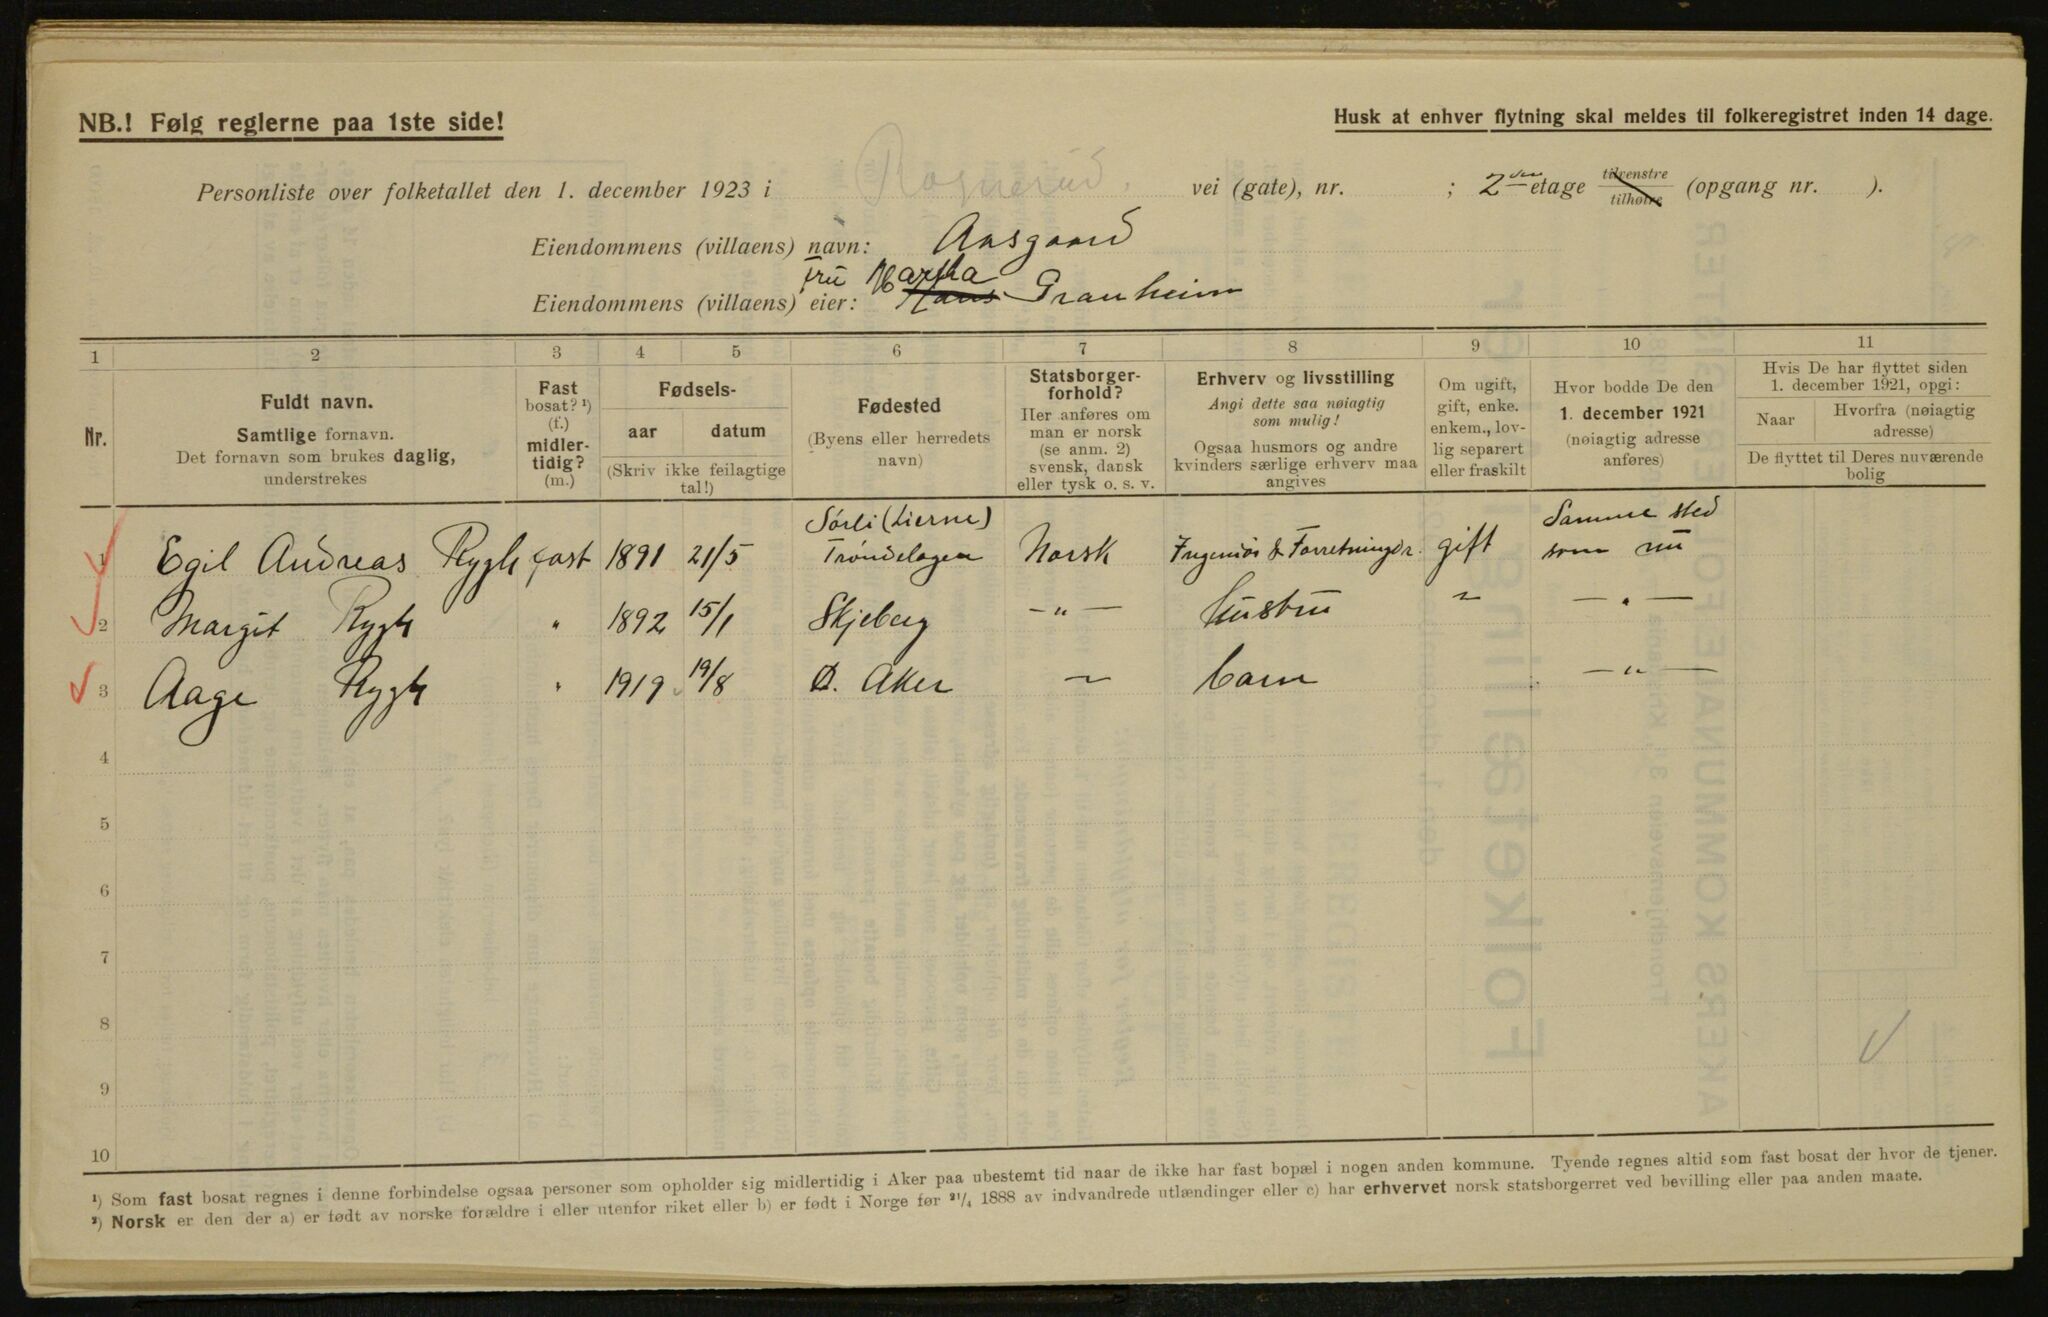 NB.! Følg reglerne paa 1ste side!
Husk at enhver flytning skal meldes til folkeregistret inden 14 dage.
Personliste over folketallet den 1. december 1923 i Rognerud. vei (gate), nr. ; 2den etage tilvenstre tilhøire (opgang nr. ).
Eiendommens (villaens) navn: Aasgaard
Fru Martha
Eiendommens (villaens) eier: Hans Granheim
1 2 3 4 5 6 7 8 9 10 11
Nr.
Fuldt navn.
Samtlige fornavn.
Det fornavn som brukes daglig,
understrekes
Fast
bosat? ¹)
(f.)
midler-
tidig?
(m.)
Fødsels-
aar datum
(Skriv ikke feilagtige
tal!)
Fødested
(Byens eller herredets
navn)
Statsborger-
forhold?
Her anføres om
man er norsk
(se anm. 2)
svensk, dansk
eller tysk o. s. v.
Erhverv og livsstilling
Angi dette saa nøiagtig
som mulig!
Ogsaa husmors og andre
kvinders særlige erhverv maa
angives
Om ugift,
gift, enke.
enkem., lov-
lig separert
eller fraskilt
Hvor bodde De den
1. december 1921
(nøiagtig adresse
anføres)
Hvis De har flyttet siden
1. december 1921, opgi:
Naar
Hvorfra (nøiagtig
adresse)
De flyttet til Deres nuværende
bolig
Sørli (Lierne) Samme sted
1 Egil Andreas Rygh fast 1891 21/5 Trøndelagen Norsk Ingeniør & Forretningsdr. gift som nu
2 Margit Rygh " 1892 15/1 Skjeberg —"— Hustru " —"—
3 Aage Rygh " 1919 19/8 Ø. Aker " barn —"—
4
5
6
7
8
9
10
¹) Som fast bosat regnes i denne forbindelse ogsaa personer som opholder sig midlertidig i Aker paa ubestemt tid naar de ikke har fast bopæl i nogen anden kommune. Tyende regnes altid som fast bosat der hvor de tjener.
²) Norsk er den der a) er født av norske forældre i eller utenfor riket eller b) er født i Norge før ²¹/₄ 1888 av indvandrede utlændinger eller c) har erhvervet norsk statsborgerret ved bevilling eller paa anden maate.